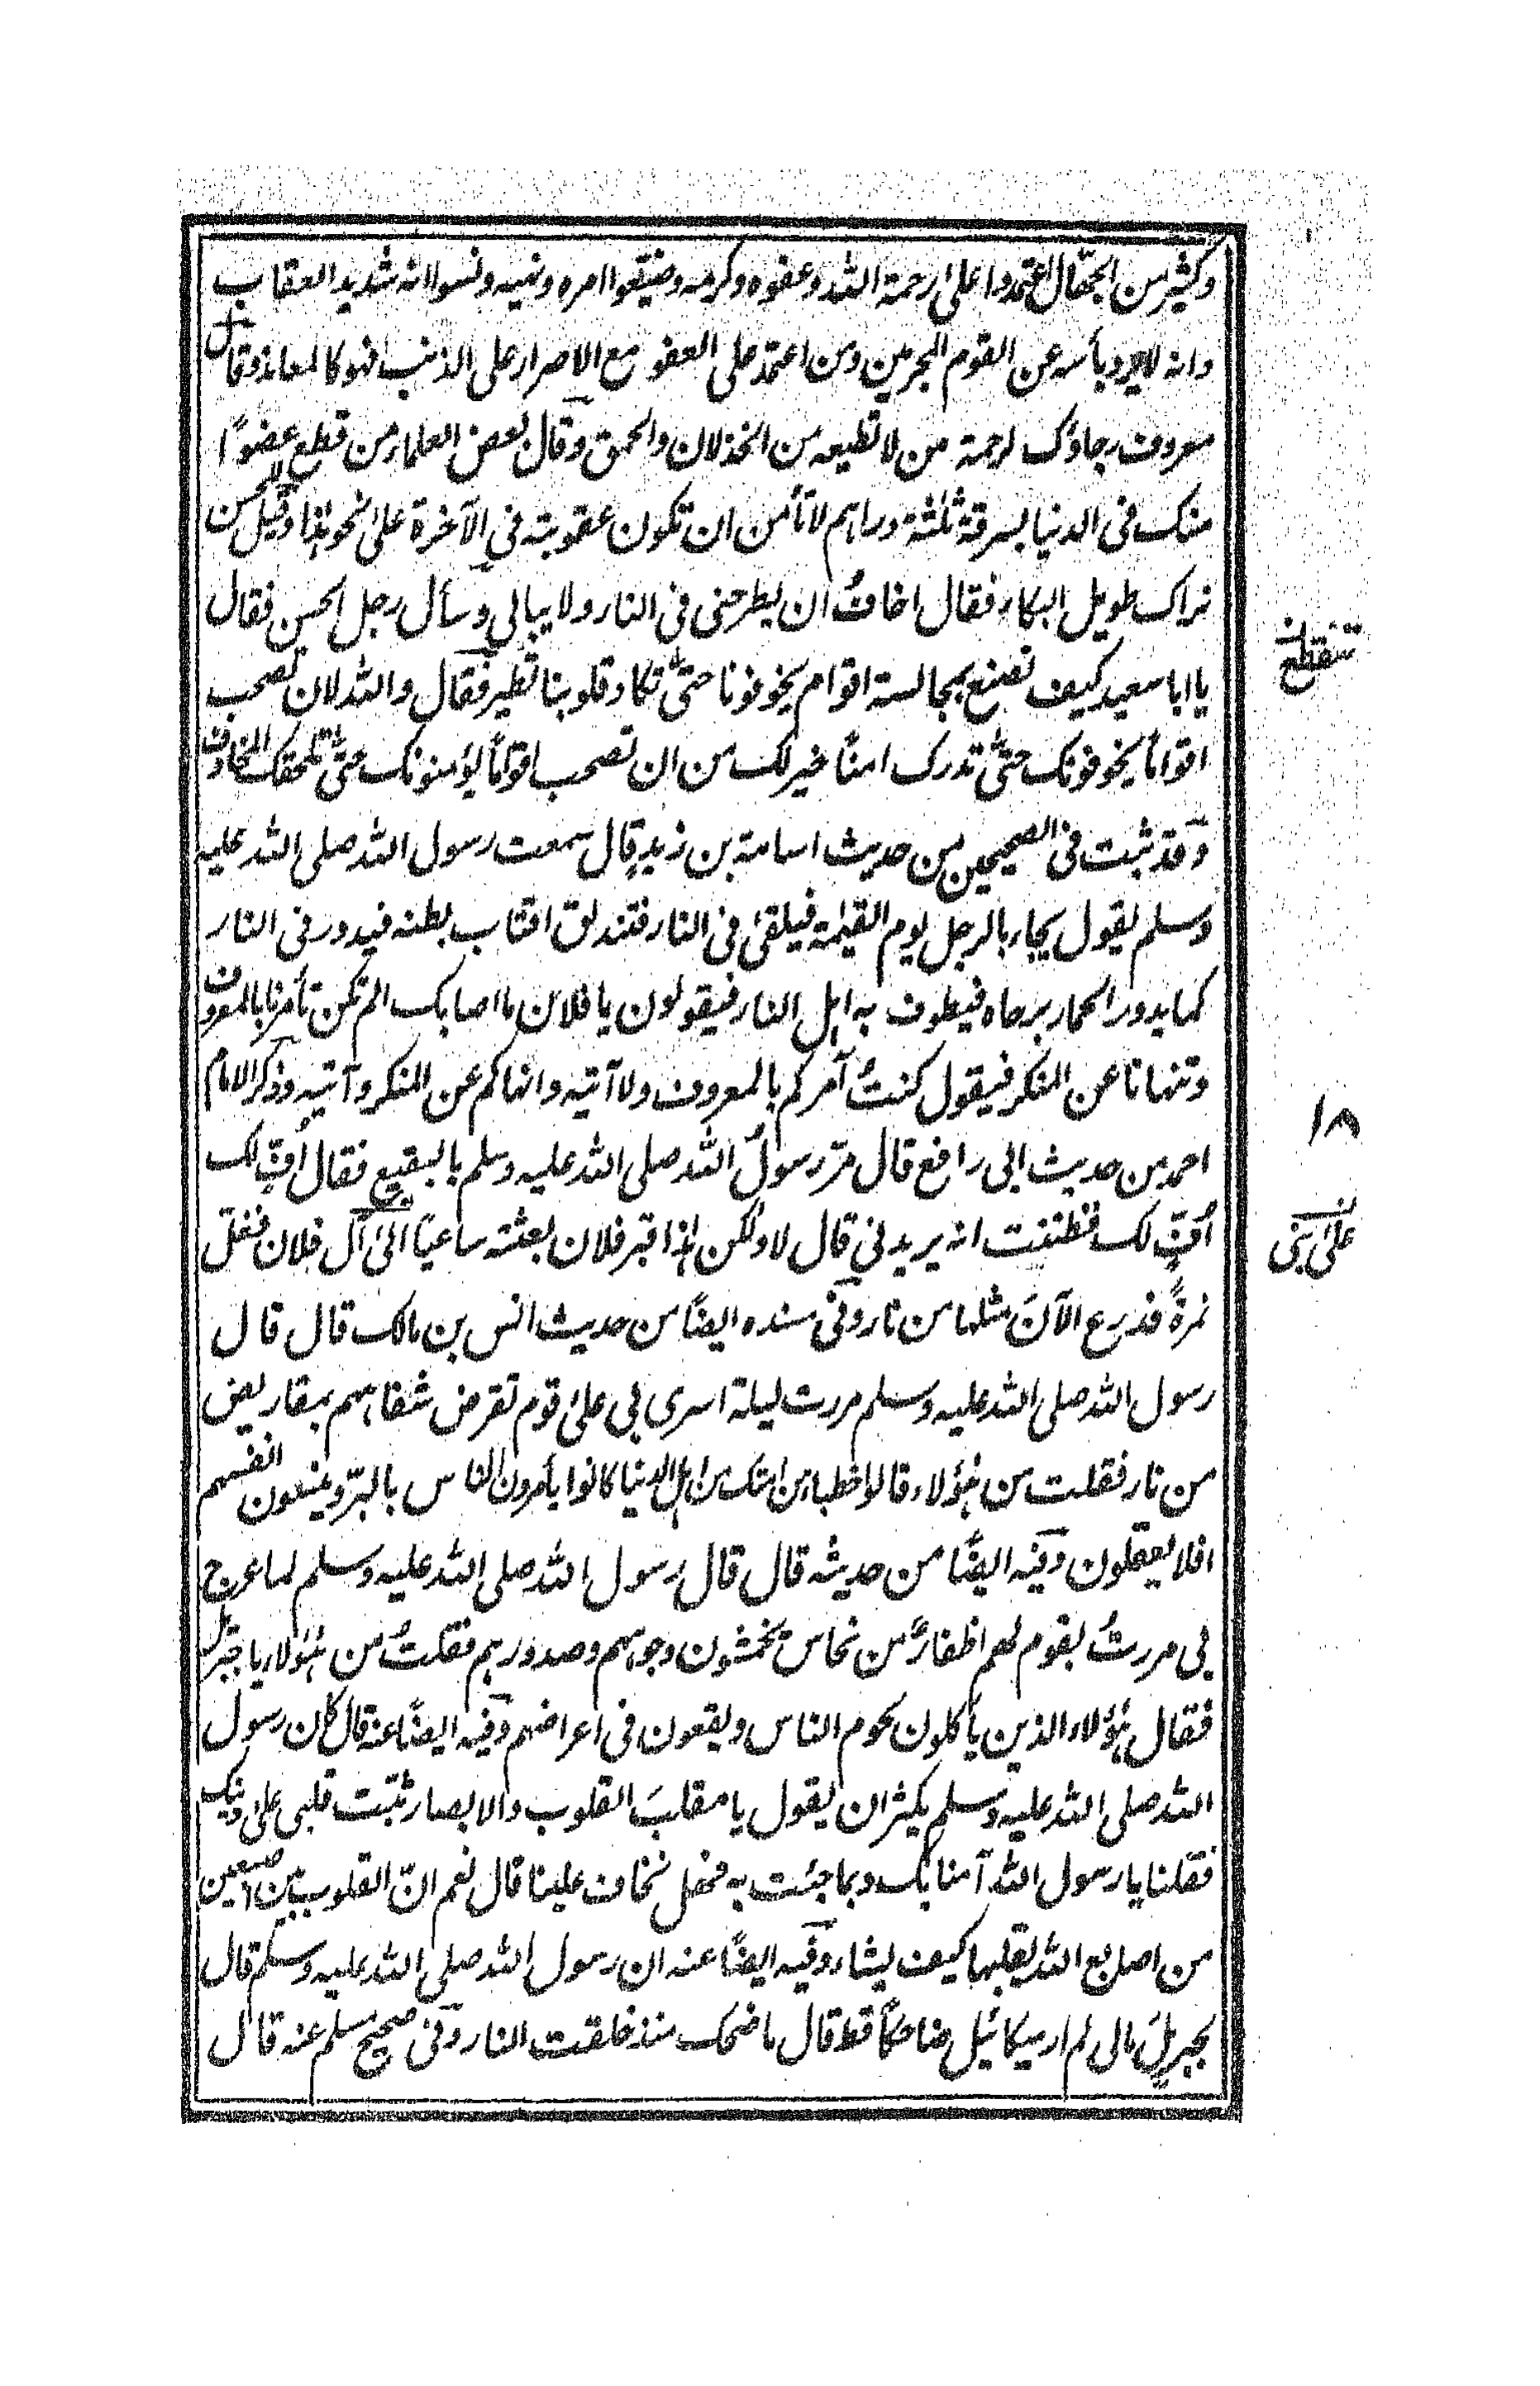 وكثير من الجهّال اعتمدوا على رحمة الله وعفوه وكرمه وضيّعوا امره ونهيه ونسوا انه شديد العقاب
وانه لا يرد بأسه عن القوم المجرمين ومن اعتمد على العفو مع الاصرار على الذنب فهو كالمعاند وقال
معروف رجاؤك لرحمة من لا تطيعه من الخذلان والحمق وقال بعض العلماء من قطع عضوًا
منك فى الدنيا بسرقة ثلثة دراهم لا تأمن ان تكون عقوبته في الآخرة على نحو هذا وقيل للحسن
نراك طويل البكاء فقال اخافُ ان يطرحنى فى النار ولا يبالي وسأل رجل الحسن فقال
يا ابا سعيد كيف تصنع بمجالسة اقوام يخوفونا حتى تكاد قلوبنا تطير فقال والله لان تصحب
تنقطع
اقواماً يخوفونك حتى تدرك امنًا خير لك من ان تصحب اقوامًا يؤمنونك حتى تلحقك المخاوف
وقد ثبت فى الصحيحين من حديث اسامة بن زيد قال سمعت رسول الله صلى الله عليه
وسلم يقول يجاء بالرجل يوم القيٰمة فيلقى فى النار فتندلق اقتاب بطنه فيدور فى النار
كما يدور الحمار برحاه فيطوف به اهل النار فيقولون يا فلان ما اصابك الم تكن تأمرنا بالمعروف
وتنهانا عن المنكر فيقول كنتُ آمركم بالمعروف ولا آتيه وانهاكم عن المنكر وآتيه وذكر الامام
١٨
احمد من حديث ابى رافع قال مرّ رسولُ الله صلى الله عليه وسلم بالبقيع فقال اُفٍّ لك
اُفٍّ لك فظننت انه يريدني قال لا ولكن هذا قبر فلان بعثته ساعيًا الىٰ آل فلان فغلّ
على بنى
نمرةً فدرع الآنَ مثلها من نار وفى مسنده ايضًا من حديث انس بن مالك قال قال
رسول الله صلى الله عليه وسلم مررت ليلة اسرى بي على قوم تقرض شفاههم بمقاريض
من نار فقلت من هٰؤلاء قالوا خطباء من امتك من اهل الدنيا كانوا يأمرون الناس بالبرّ وينسون انفسهم
افلا يعقلون وفيه ايضًا من حديثه قال قال رسول الله صلى الله عليه وسلم لما عرج
بى مررتُ بقوم لهم اظفارٌ من نحاس يخمشون وجوههم وصدورهم فقلتُ من هٰؤلاء يا جبريل
فقال هٰؤلاء الذين يأكلون لحوم الناس ويقعون فى اعراضهم وفيه ايضًا عنه قال كان رسول
الله صلى الله عليه وسلم يكثر ان يقول يا مقلبَ القلوب والابصار ثبّت قلبى على دينك
فقلنا يا رسول الله آمنا بك وبما جئت به فهل تخاف علينا قال نعم انّ القلوب بين اصبعين
من اصابع الله يقلبها كيف يشاء وفيه ايضًا عنه ان رسول الله صلى الله عليه وسلم قال
لجبريلَ مالى لم ار ميكائيل ضاحكًا قط قال ما ضحك منذ خلقت النار وفى صحيح مسلم عنه قال